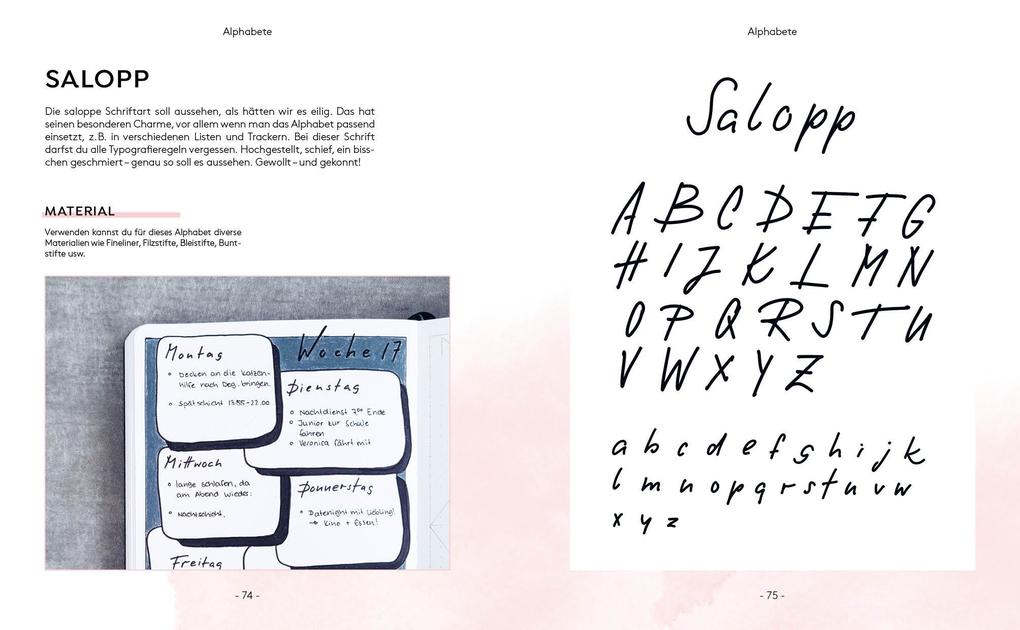 Alphabete
SALOPP
Die saloppe Schriftart soll aussehen, als hätten wir es eilig. Das hat
seinen besonderen Charme, vor allem wenn man das Alphabet passend
einsetzt, z. B. in verschiedenen Listen und Trackern. Bei dieser Schrift
darfst du alle Typografieregeln vergessen. Hochgestellt, schief, ein biss-
chen geschmiert – genau so soll es aussehen. Gewollt – und gekonnt!
MATERIAL
Verwenden kannst du für dieses Alphabet diverse
Materialien wie Fineliner, Filzstifte, Bleistifte, Bunt-
stifte usw.
Woche 17
Montag
Decken an die Katzen-
hilfe nach Deg. bringen.
Spätschicht 13:55-22:00
Dienstag
Nachtdienst 7⁰⁰ Ende
Junior zur Schule
fahren
Veronica fährt mit
Mittwoch
lange schlafen, da
am Abend wieder:
Nachtschicht.
Donnerstag
Datenight mit Liebling!
→ Kino + Essen!
Freitag
- 74 -
Alphabete
Salopp
A B C D E F G
H I J K L M N
O P Q R S T U
V W X Y Z
a b c d e f g h i j k
l m n o p q r s t u v w
x y z
- 75 -